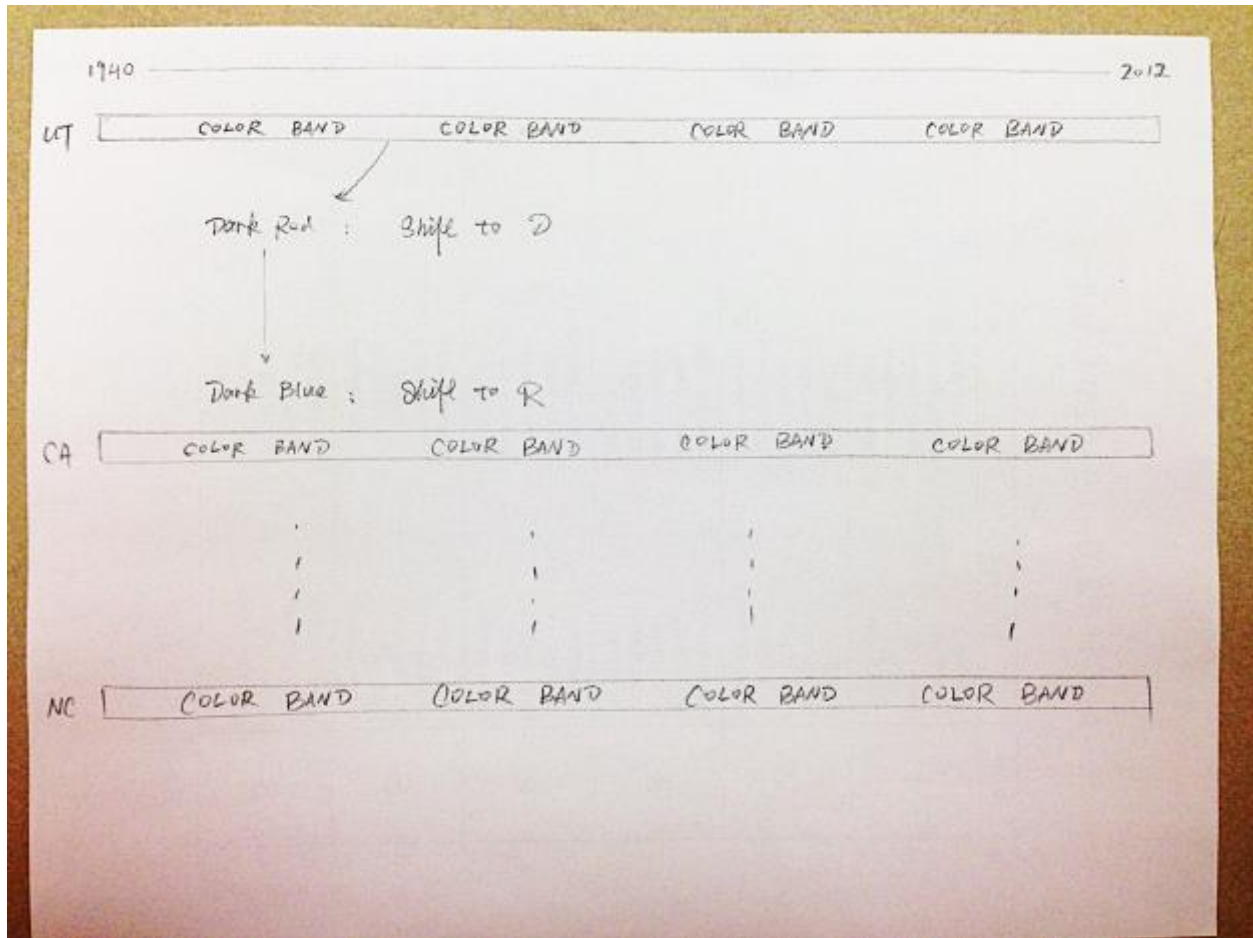 1940 2012
UT COLOR BAND COLOR BAND COLOR BAND COLOR BAND
Dark Red : Shift to D
Dark Blue : Shift to R
CA COLOR BAND COLOR BAND COLOR BAND COLOR BAND
NC COLOR BAND COLOR BAND COLOR BAND COLOR BAND